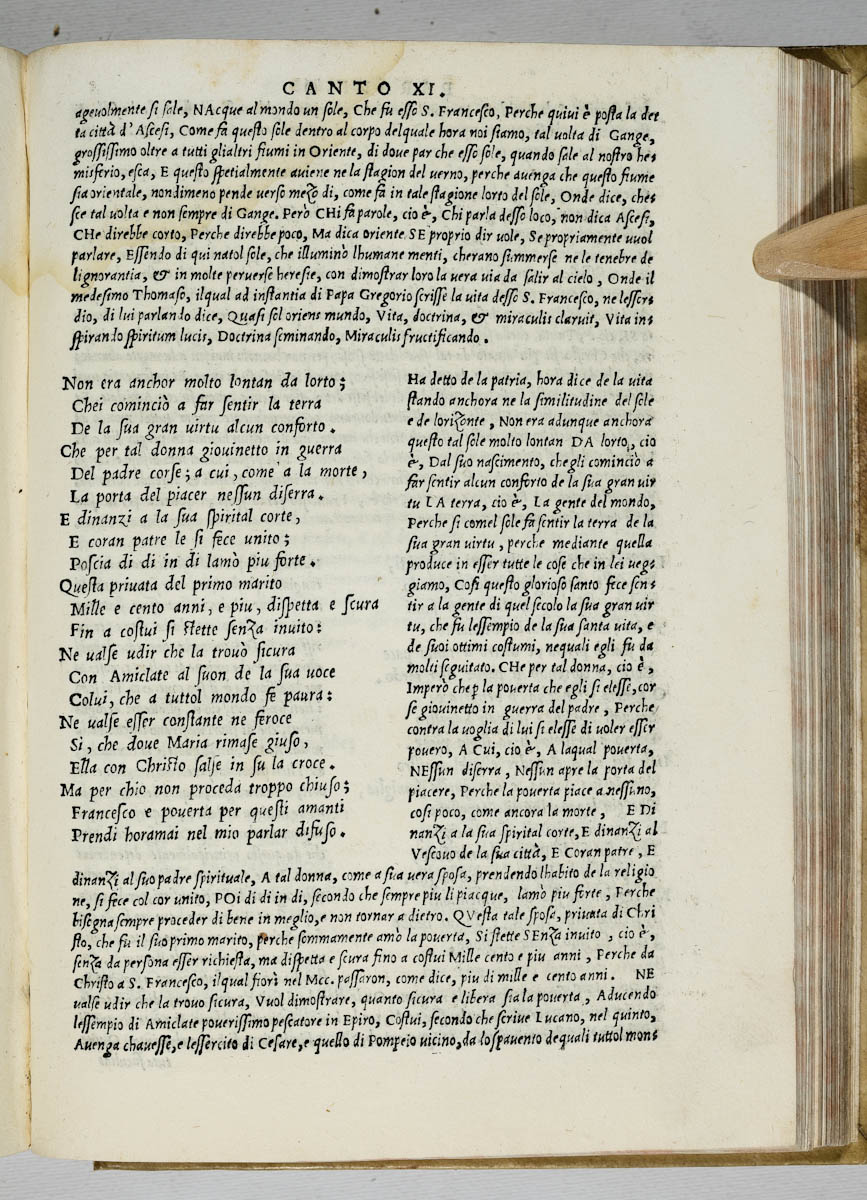 CANTO XI.
agevolmente si sale, NAcque al mondo un sole, Che fu esso S. Francesco, Perche quivi è posta la det
ta città d'Ascesi, Come fa questo sole dentro al corpo delquale hora noi siamo, tal volta di Gange,
grossissimo oltre a tutti glialtri fiumi in Oriente, di dove par che esso sole, quando sale al nostro he=
misferio, esca, E questo spetialmente aviene ne la stagion del verno, perche avenga che questo fiume
sia orientale, nondimeno pende verso mezo di, come fa in tale stagione lorto del sole, Onde dice, ches=
sce tal volta e non sempre di Gange. Però CHi fa parole, cio è, Chi parla desso loco, non dica Ascesi,
CHe direbbe corto, Perche direbbe poco, Ma dica oriente SE proprio dir vole, Se propriamente vuol
parlare, Essendo di qui natol sole, che illuminò lhumane menti, cherano simmerse ne le tenebre de
lignorantia, & in molte perverse heresie, con dimostrar loro la vera via da salir al cielo, Onde il
medesimo Thomaso, ilqual ad instantia di Papa Gregorio scrisse la vita desso S. Francesco, ne lessor=
dio, di lui parlando dice, Quasi sol oriens mundo, Vita, doctrina, & miraculis claruit, Vita in=
spirando spiritum lucis, Doctrina seminando, Miraculis fructificando.
Non era anchor molto lontan da lorto;
Chei cominciò a far sentir la terra
De la sua gran virtu alcun conforto.
Che per tal donna giouinetto in guerra
Del padre corse; a cui, come a la morte,
La porta del piacer nessun diserra.
E dinanzi a la sua spirital corte,
E coran patre le si fece unito;
Poscia di di in di lamò piu forte.
Questa priuata del primo marito
Mille e cento anni, e piu, dispetta e scura
Fin a costui si stette senza inuito:
Ne ualse udir che la trouò sicura
Con Amiclate al suon de la sua uoce
Colui, che a tuttol mondo fe paura:
Ne ualse esser constante ne feroce
Si, che doue Maria rimase giuso,
Ella con Christo salse in su la croce.
Ma per chio non proceda troppo chiuso;
Francesco e pouerta per questi amanti
Prendi horamai nel mio parlar difuso.
Ha detto de la patria, hora dice de la uita
stando anchora ne la similitudine del sole
e de lorizonte, Non era adunque anchora
questo tal sole molto lontan DA lorto, cio
è, Dal suo nascimento, chegli cominciò a
far sentir alcun conforto de la sua gran uir
tu LA terra, cio è, La gente del mondo,
Perche si comel sole fa sentir la terra de la
sua gran uirtu, perche mediante quella
produce in esser tutte le cose che in lei ueg=
giamo, Cosi questo glorioso santo fece sen=
tir a la gente di quel secolo la sua gran uir
tu, che fu lessempio de la sua santa uita, e
de suoi ottimi costumi, nequali egli fu da
molti seguitato. CHe per tal donna, cio è,
Imperò che p la pouerta che egli si elesse, cor
se giouinetto in guerra del padre, Perche
contra la uoglia di lui si elesse di uoler esser
pouero, A Cui, cio è, A laqual pouerta,
NEssun diserra, Nessun apre la porta del
piacere, Perche la pouerta piace a nessuno,
cosi poco, come ancora la morte, E DI
nanzi a la sua spirital corte, E dinanzi al
Vescouo de la sua città, E Coran patre, E
dinanzi al suo padre spirituale, A tal donna, come a sua uera sposa, prendendo lhabito de la religio
ne, si fece col cor unito, POi di di in di, secondo che sempre piu li piacque, lamò piu forte, Perche
bisegna sempre proceder di bene in meglio, e non tornar a dietro. QVesta tale sposa, priuata di Chri
sto, che fu il suo primo marito, perche sommamente amò la pouerta, Si stette SEnza inuito, cio è,
senza da persona esser richiesta, ma dispetta e scura fino a costui Mille cento e piu anni, Perche da
Christo a S. Francesco, ilqual fiorì nel Mcc. passaron, come dice, piu di mille e cento anni. NE
ualse udir che la trouo sicura, Vuol dimostrare, quanto sicura e libera sia la pouerta, Aducendo
lessempio di Amiclate pouerissimo pescatore in Epiro, Costui, secondo che scriue Lucano, nel quinto,
Auenga chauesse, e lessercito di Cesare, e quello di Pompeio uicino, da lo spauento dequali tuttol mon=